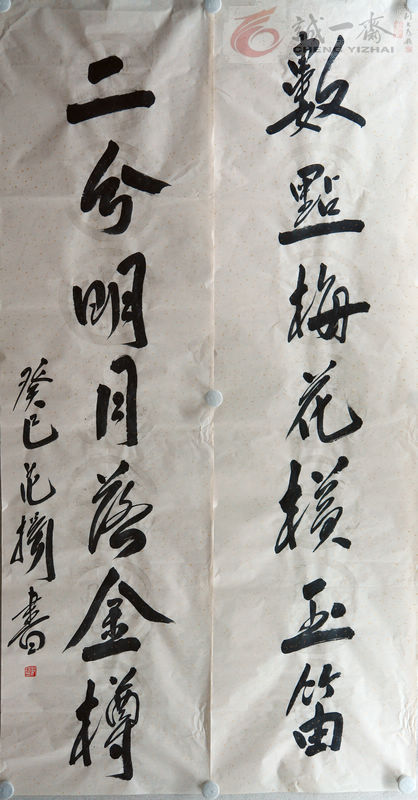 數點梅花橫玉笛
二分明月落金樽
癸巳范書
誠一齋
CHENG YIZHAI